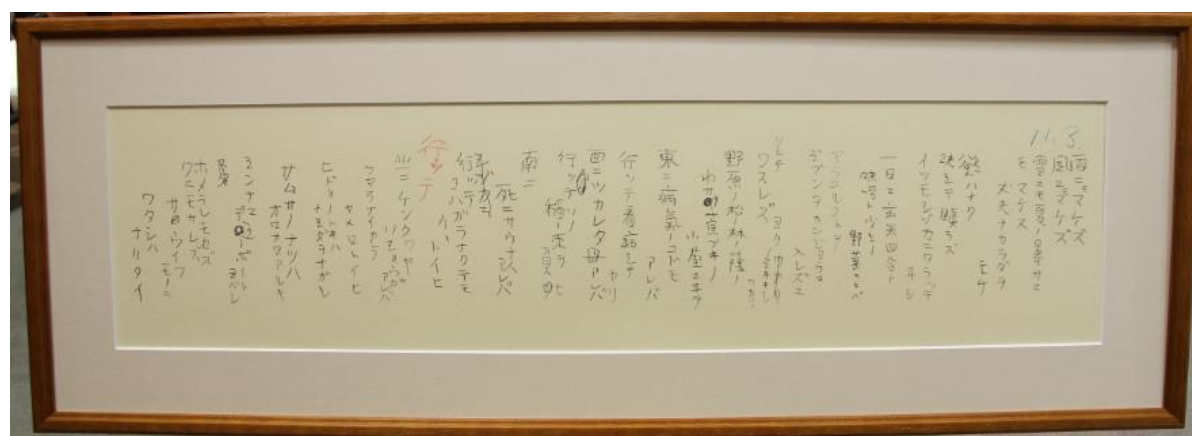 11.3.
雨ニモマケズ
風ニモマケズ
雪ニモ夏ノ暑サニ
モマケズ
丈夫ナカラダヲ
モチ
慾ハナク
決シテ瞋ラズ
イツモシヅカニワラッテ
ヰル
一日ニ玄米四合ト
味噌ト少シノ
野菜ヲタベ
アラユルコトヲ
ジブンヲカンジョウニ
入レズニ
ヨクミキキシ
ワカリ
ソシテ
ワスレズ
野原ノ松ノ林ノ蔭ノ
小サナ萓ブキノ
小屋ニヰテ
東ニ病氣ノコドモ
アレバ
行ッテ看病シテ
ヤリ
西ニツカレタ母アレバ
行ッテソノ
稲ノ束ヲ
負ヒ
南ニ
死ニサウナ人アレバ
行ッテ
コハガラナクテモ
イヽ
トイヒ
行ッテ
北ニケンクヮヤ
ソショウガ
アレバ
ツマラナイカラ
ヤメロトイヒ
ヒドリノトキハ
ナミダヲナガシ
サムサノナツハ
オロオロアルキ
ミンナニ
デクノボート
ヨバレ
ホメラレモセズ
クニモサレズ
サウイフ
モノニ
ワタシハ
ナリタイ